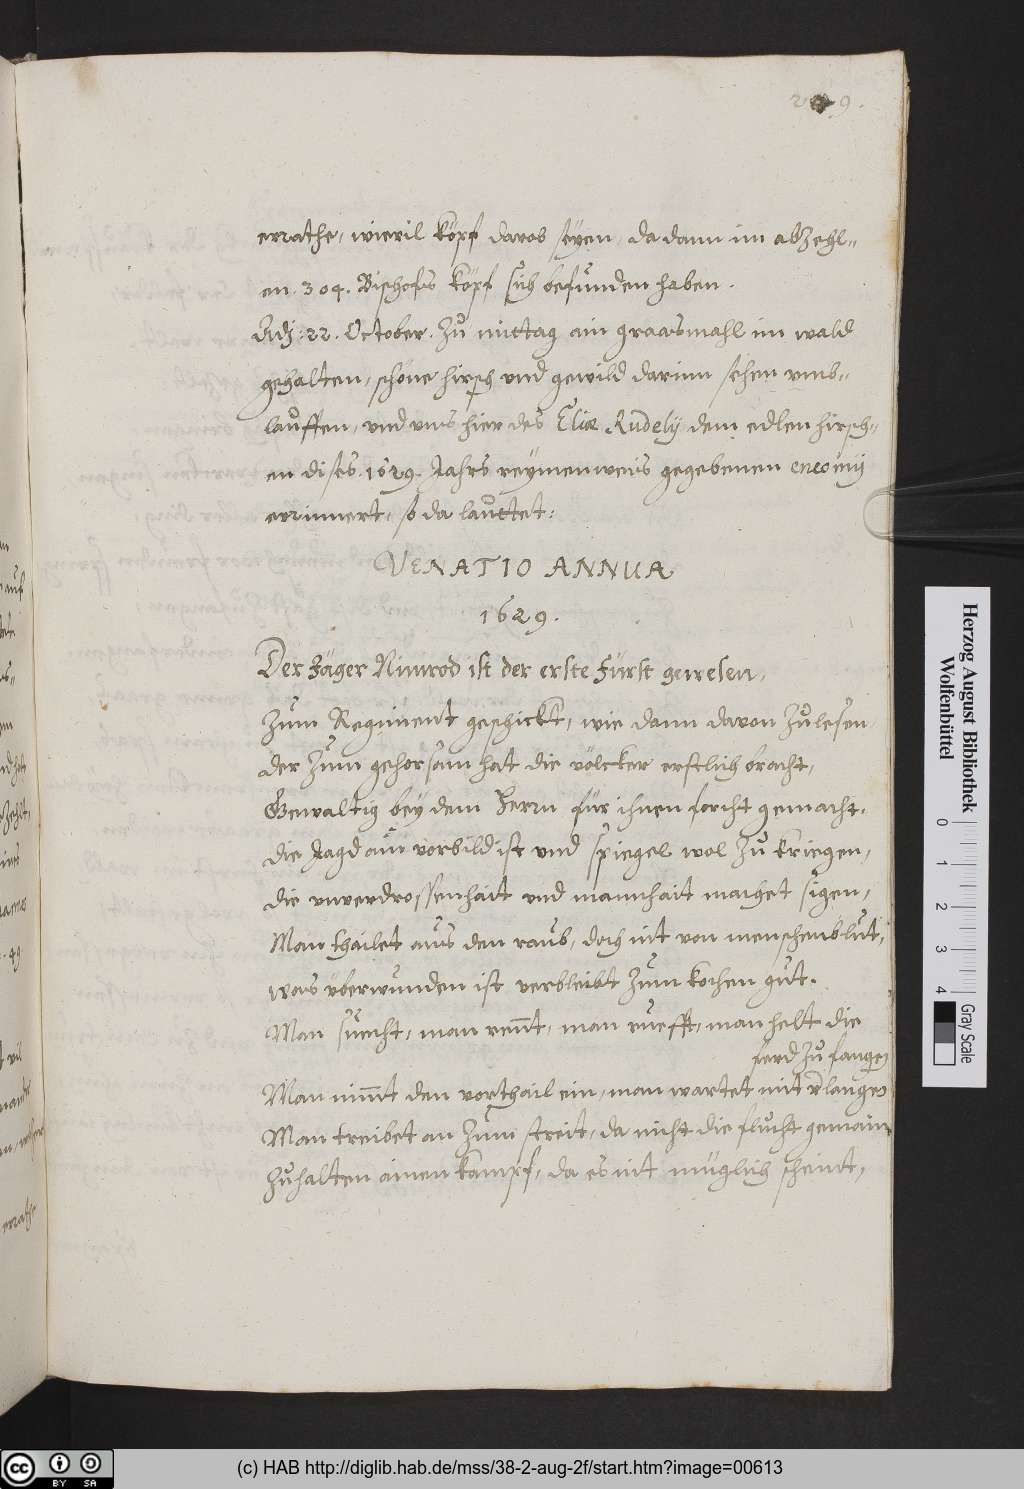 299.
errathe, wievil köpf davos seÿen, da dann im abZehl=
en. 304. Bischofs köpf sich befunden haben.
Adj: 22. October. Zu mittag ain graasmahl im wald
gehalten, schöne hirsch und gewild darinn sehen umb=
lauffen, und uns hier des Eliæ Rudely dem edlen hirsch=
en dises. 1629. Jahrs reÿmenweis gegebenen encomij
errinnert, so da lauttet:
VENATIO ANNUA
1629.
Der Jäger Nimrod ist der erste Fürst gewesen,
Zum Regiment geschickt, wie dann davon Zu lesen,
der Zum gehorsam hat die völcker erstlich bracht,
Gewaltig beÿ dem Herrn für ihnen forcht gemacht.
die Jagd ain vorbild ist und spiegel wol Zu kriegen,
die unverdrossenhait und mannhait machet sigen,
Man thailet aus den raub, doch nit von menschenblut,
was überwunden ist verbleibt Zum kochen gut.
Man suecht, man rennt, man ruefft, man helt die
ferd Zu fangen
Man nimmt den vorthail ein, man wartet mit verlangen
Man treibet an Zum streit, da nicht die flucht gemain
Zuhalten ainen kampf, da es nit müglich scheint,
errathe
Herzog August Bibliothek
Wolfenbüttel
0 1 2 3 4
Gray Scale
(c) HAB http://diglib.hab.de/mss/38-2-aug-2f/start.htm?image=00613
cc BY SA